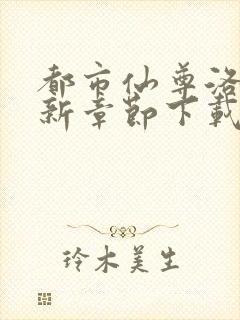 都市仙尊洛
新章節下載
玲木美生